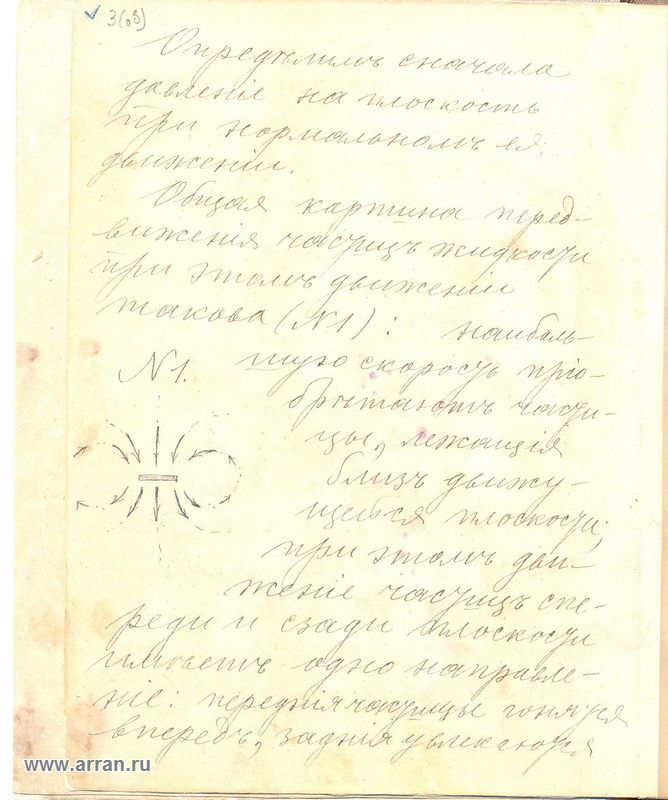 3(об)
Опредѣлимъ сначала
давленіе на плоскость
при нормальномъ ея
движеніи.
Общая картина перед-
виженія частицъ жидкости
при этомъ движеніи
такова (N1): наиболь-
шую скорость пріо-
N1.
брѣтаютъ части-
цы, лежащія
близъ движу-
щейся плоскости;
при этомъ дви-
женіе частицъ спе-
реди и сзади плоскости
имѣетъ одно направле-
ніе: переднія частицы гонятся
впередъ, заднія увлекаются
www.arran.ru